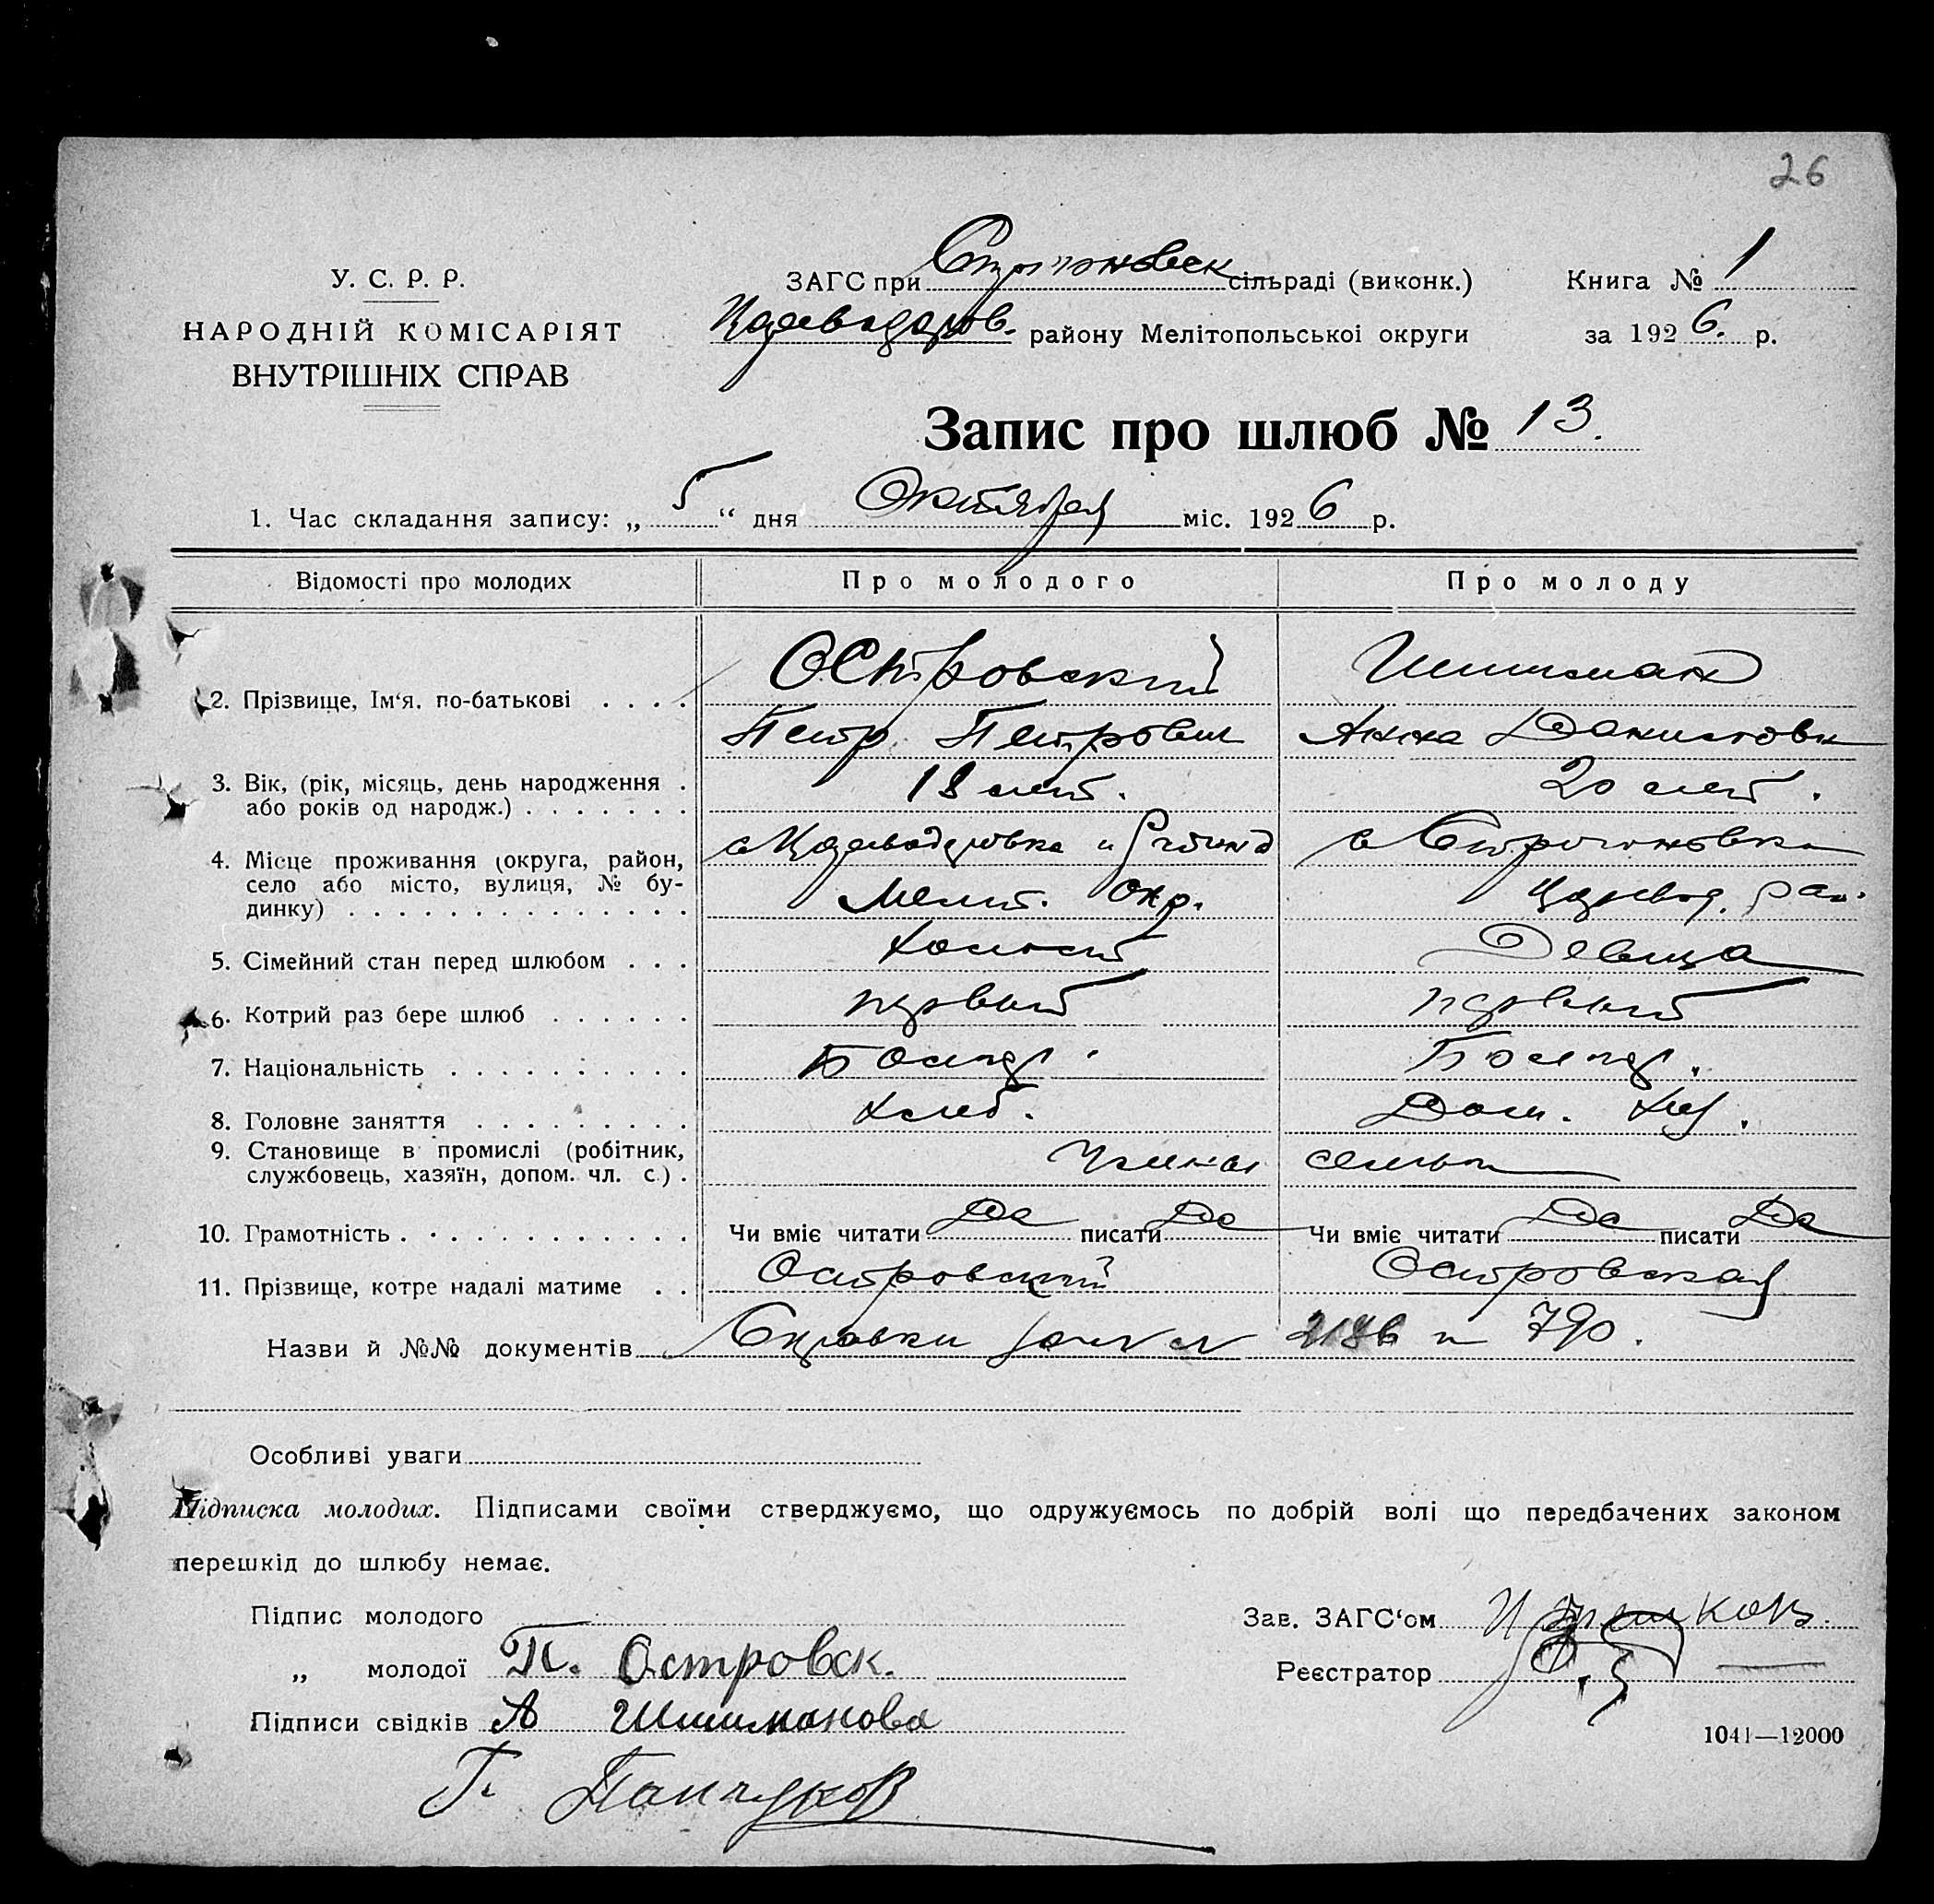 26
У. С. Р. Р.
НАРОДНІЙ КОМІСАРІЯТ
ВНУТРІШНІХ СПРАВ
ЗАГС при сільраді (виконк.)
району Мелітопольської округи
Книга № 1
за 1926. р.
Запис про шлюб № 13.
1. Час складання запису: „ 5 “ дня Октября міс. 1926 р.
Відомості про молодих Про молодого Про молоду
2. Прізвище, Ім‘я, по-батькові . . . . Островский Шишман
Петр Петрович Анна Даниловн
3. Вік, (рік, місяць, день народження . 18 лет. 20 лет.
або років од народж.) . . . . . . .
4. Місце проживання (округа, район, с Цареводаровка с Строгоновка
село або місто, вулиця, № бу- Мелит. Окр. Царевод. рай.
динку) . . . . . . . . . . . . . .
5. Сімейний стан перед шлюбом . . . холост Девица
6. Котрий раз бере шлюб . . . . . . первый первый
7. Національність . . . . . . . . . . Болгар. Болгар.
8. Головне заняття . . . . . . . . . Хлеб. Дом. Хоз.
9. Становище в промислі (робітник, Члены семьи
службовець, хазяїн, допом. чл. с.) .
10. Грамотність . . . . . . . . . . . . Чи вміє читати Да писати Да Чи вміє читати Да писати Да
11. Прізвище, котре надалі матиме . . Островский Островская
Назви й №№ документів Справки 2186 и 790.
Особливі уваги
Підписка молодих. Підписами своїми стверджуємо, що одружуємось по добрій волі що передбачених законом
перешкід до шлюбу немає.
Підпис молодого
„ молодої П. Островск.
Підписи свідків А Шишманова
Г.
Зав. ЗАГС‘ом
Реєстратор
1041—12000